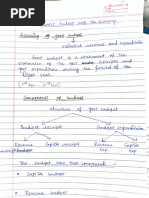 Govt budget and the economy
Meaning of govt budget
→ Estimated receipts and expenditure
Govt budget is a statement of the
estimates of the govt receipts and
govt expenditure during the period of the
fiscal year.
Components of budget
structure of govt budget
Budget receipts
Budget expenditure
Revenue
Capital receipt
Revenue
Capital
receipt
exp
exp
The budget has two component:
• Capital budget
• Revenue budget